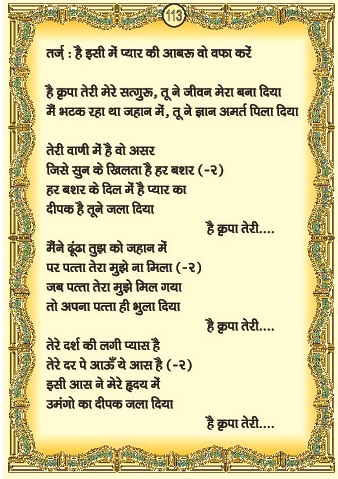 113
तर्ज़ : है इसी में प्यार की आबरू वो वफा करें
है कृपा तेरी मेरे सत्गुरू, तू ने जीवन मेरा बना दिया
मैं भटक रहा था जहान में, तू ने ज्ञान अमर्त पिला दिया
तेरी वाणी में है वो असर
जिसे सुन के खिलता है हर बशर (-२)
हर बशर के दिल में है प्यार का
दीपक है तूने जला दिया
है कृपा तेरी....
मैंने ढूंढा तुझ को जहान में
पर पत्ता तेरा मुझे ना मिला (-२)
जब पत्ता तेरा मुझे मिल गया
तो अपना पत्ता ही भुला दिया
है कृपा तेरी....
तेरे दर्श की लगी प्यास है
तेरे दर पे आऊँ ये आस है (-२)
इसी आस ने मेरे हृदय में
उमंगो का दीपक जला दिया
है कृपा तेरी....